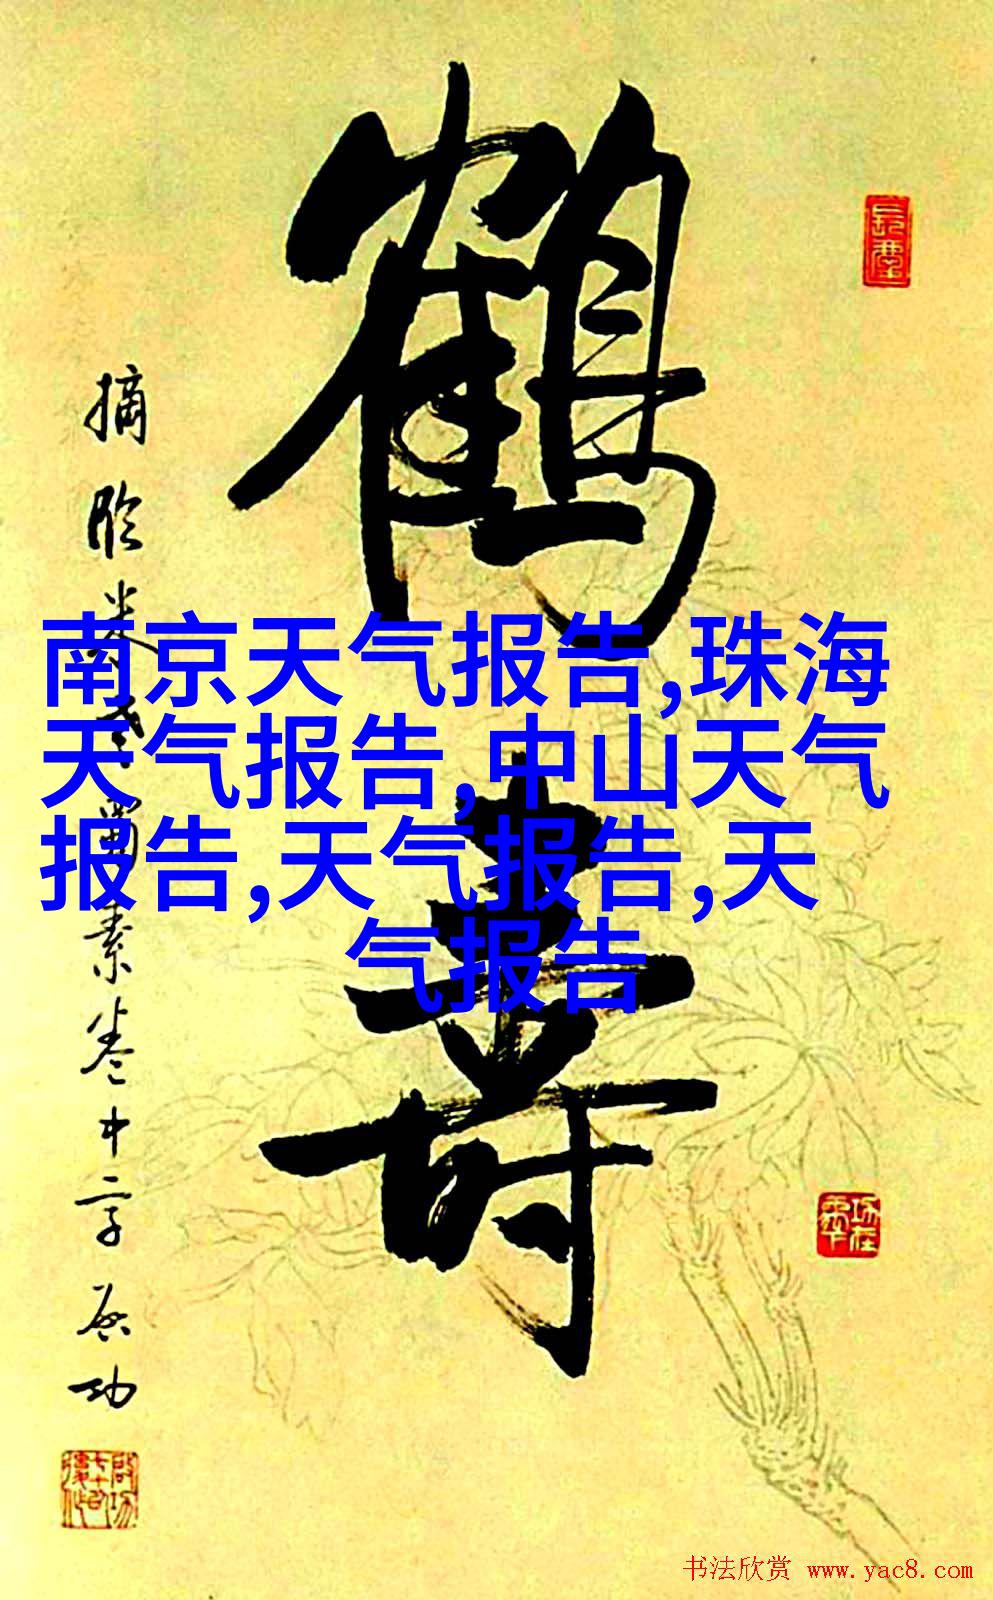 鹤
寿
摘临米老蜀素卷中字启功
南京天气报告,珠海
天气报告,中山天气
报告,天气报告,天
气报告
启功
书法欣赏 www.yac8.com